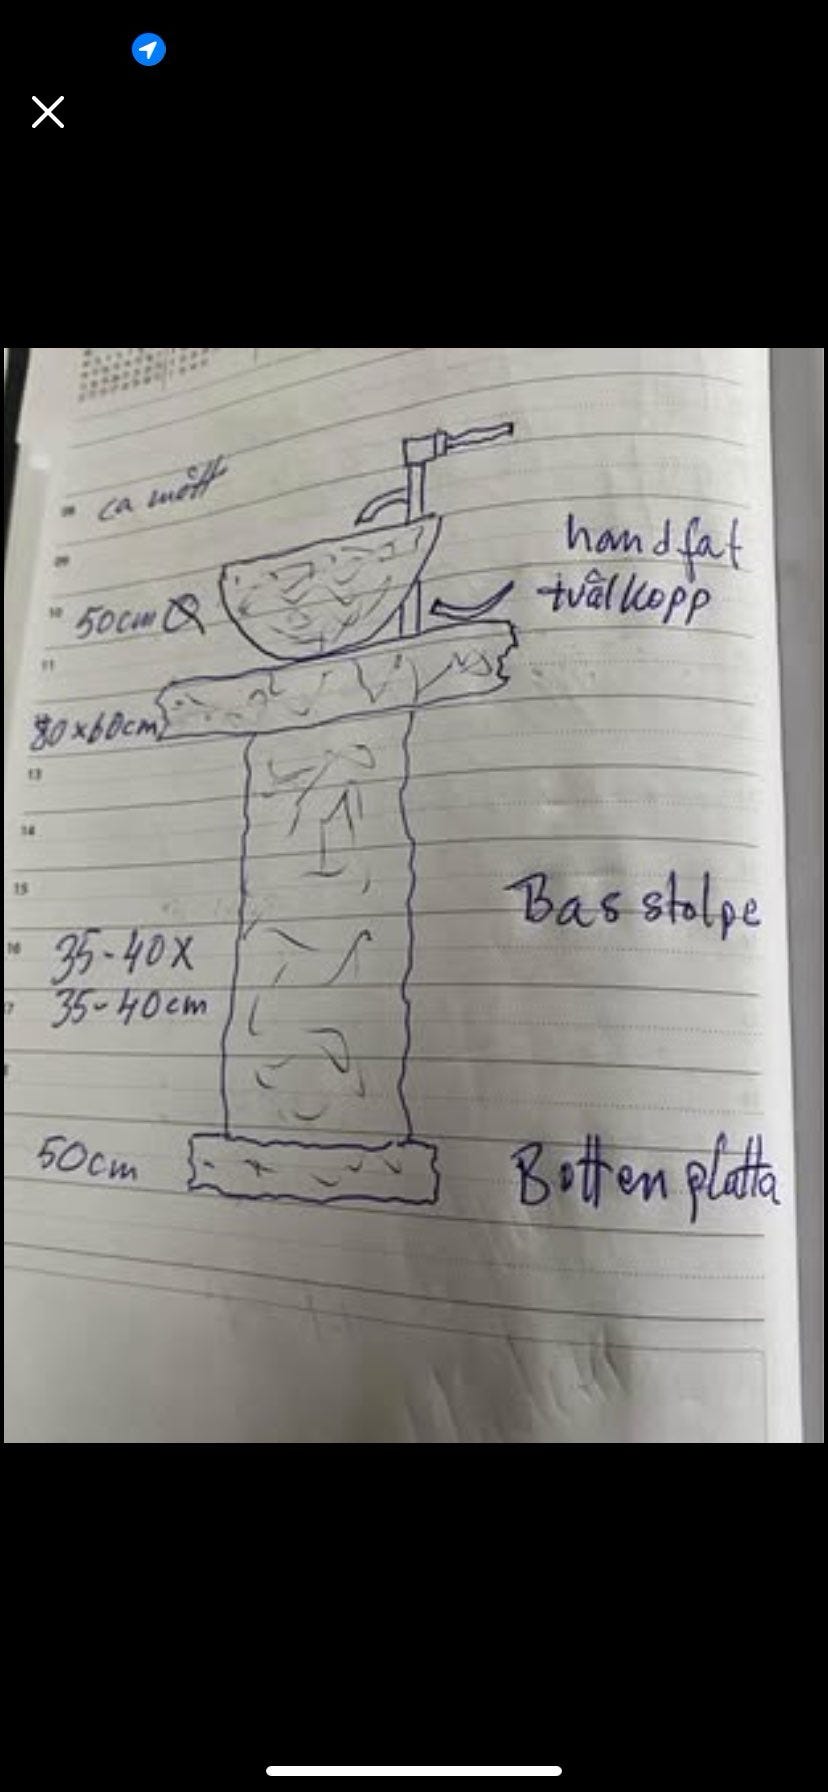 ca mått
handfat
tvålkopp
50cm Ø
80x60cm
Bas stolpe
35-40x
35-40cm
50cm
Botten platta
09
10
11
13
14
15
16
17